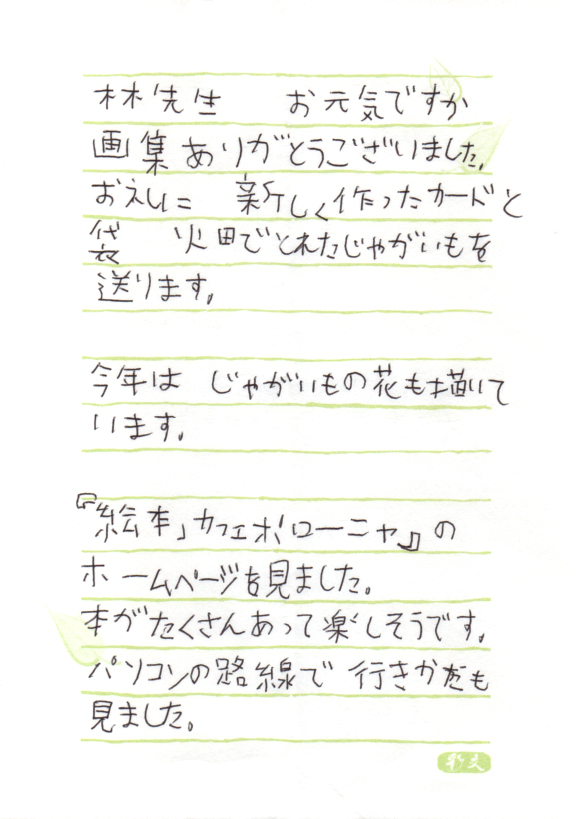 林先生　お元気ですか
画集ありがとうございました。
おえしに　新しく作ったカードと
袋　火田でとれたじゃがいもを
送ります。
今年は　じゃがいもの花も描いて
います。
『絵本」カフェボローニャ』の
ホームページを見ました。
本がたくさんあって楽しそうです。
パソコンの路線で　行きかたも
見ました。